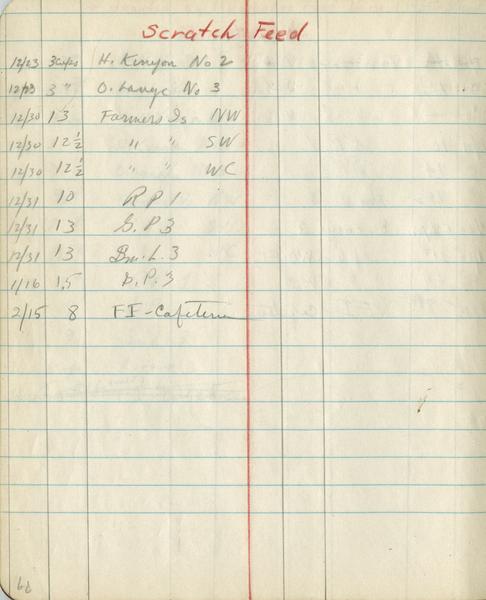 Scratch Feed
12/23 3 cups H. Kinyon No 2
12/23 3 " O. Lange No 3
12/30 13 Farmers Is NW
12/30 12 1/2 " " SW
12/30 12 1/2 " " WC
12/31 10 R P 1
12/31 13 S. P 3
12/31 13 Bm. L. 3
1/16 15 P. 3
2/15 8 FI-Cafeteria